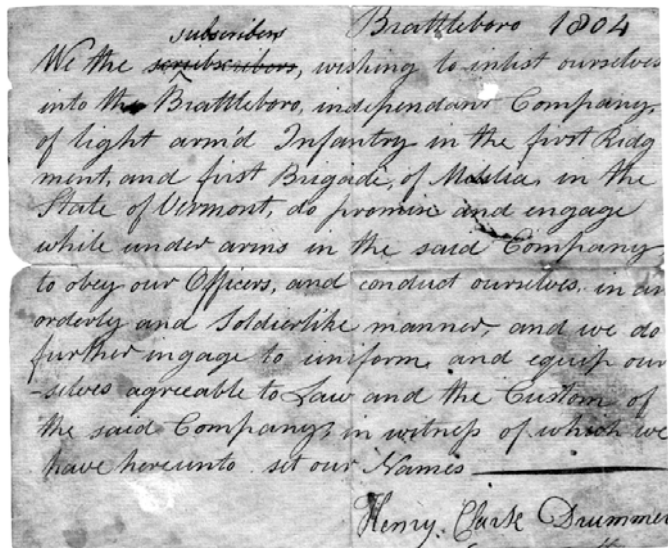 Brattleboro 1804
subscribers
We the scribscribers, wishing to inlist ourselves
into the Brattleboro, independant Company,
of light arm'd Infantry in the first Ridg
ment, and first Brigade, of Militia, in the
State of Vermont, do promise and engage
while under arms in the said Company
to obey our Officers, and conduct ourselves, in an
orderly and Soldierlike manner, and we do
further ingage to uniform, and equip our
-selves agreeable to Law and the Custom of
the said Company, in witness of which we
have hereunto set our Names
Henry Clark Drummer